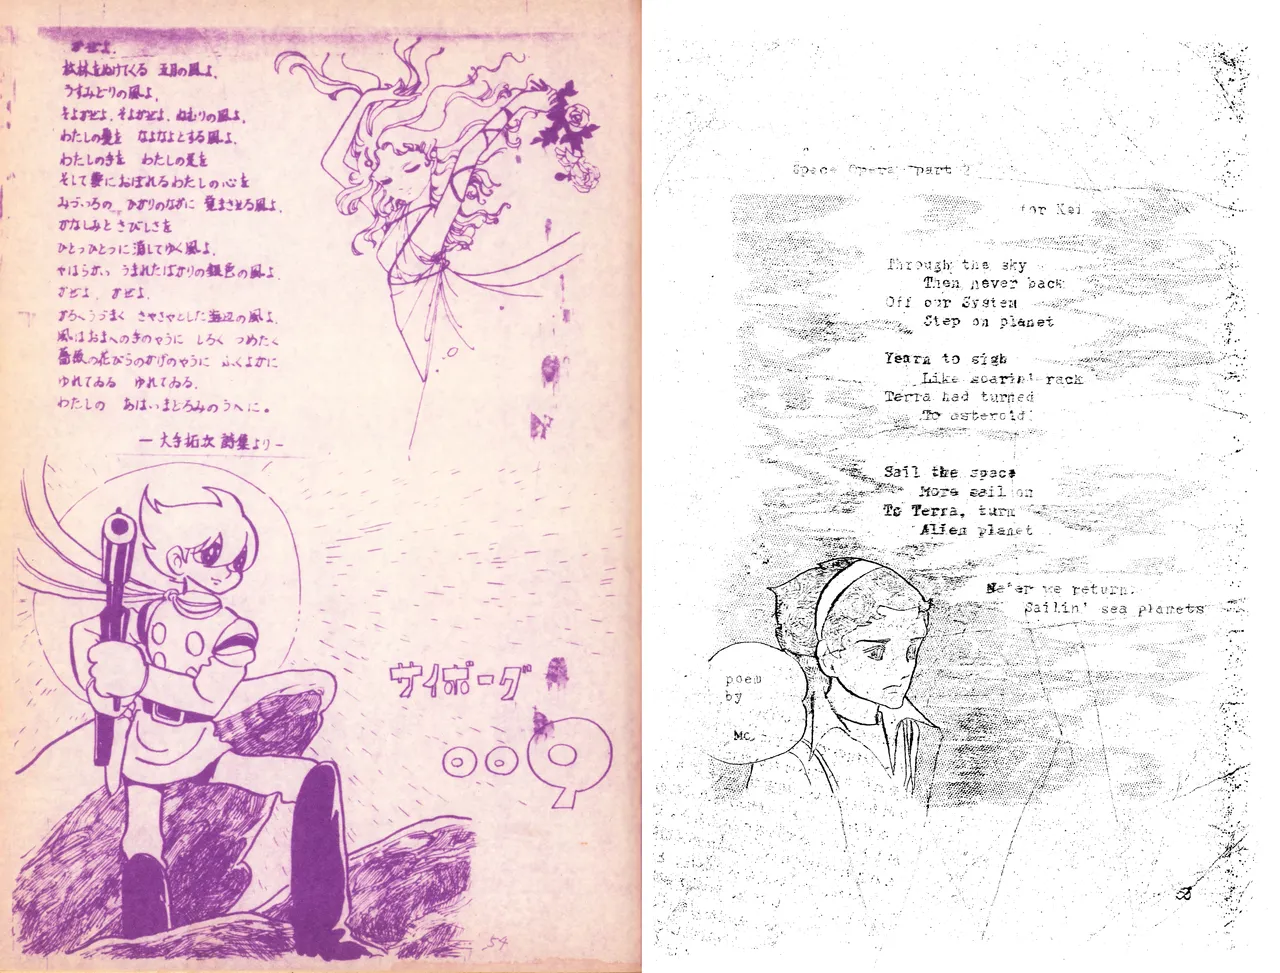 かぜよ、
松林をぬけてくる 五月の風よ、
うすみどりの風よ、
そよかぜよ、そよかぜよ、ねむりの風よ、
わたしの髪を なよなよとする風よ、
わたしの手を わたしの足を
そして夢におぼれるわたしの心を
みづいろの ひかりのなかに 覚まさせる風よ、
かなしみとさびしさを
ひとつひとつに消してゆく風よ、
やはらかい うまれたばかりの銀色の風よ、
かぜよ、かぜよ、
かろくうづまく さやさやとした海辺の風よ、
風はおまへの手のやうに しろく つめたく
薔薇の花びらのかげのやうに ふくよかに
ゆれてゐる ゆれてゐる、
わたしの あはいまどろみのうへに。
— 大手拓次 詩集より —
サイボーグ
009
54
Space Opera part 2
for Kei
Through the sky
Then never back
Off our System
Step on planet
Yearn to sigh
Like soarin' rack
Terra had turned
To asteroid!
Sail the space
More sail on
To Terra, turn
Alien planet
Ne'er we return.
Sailin' sea planets
poem
by
MC.